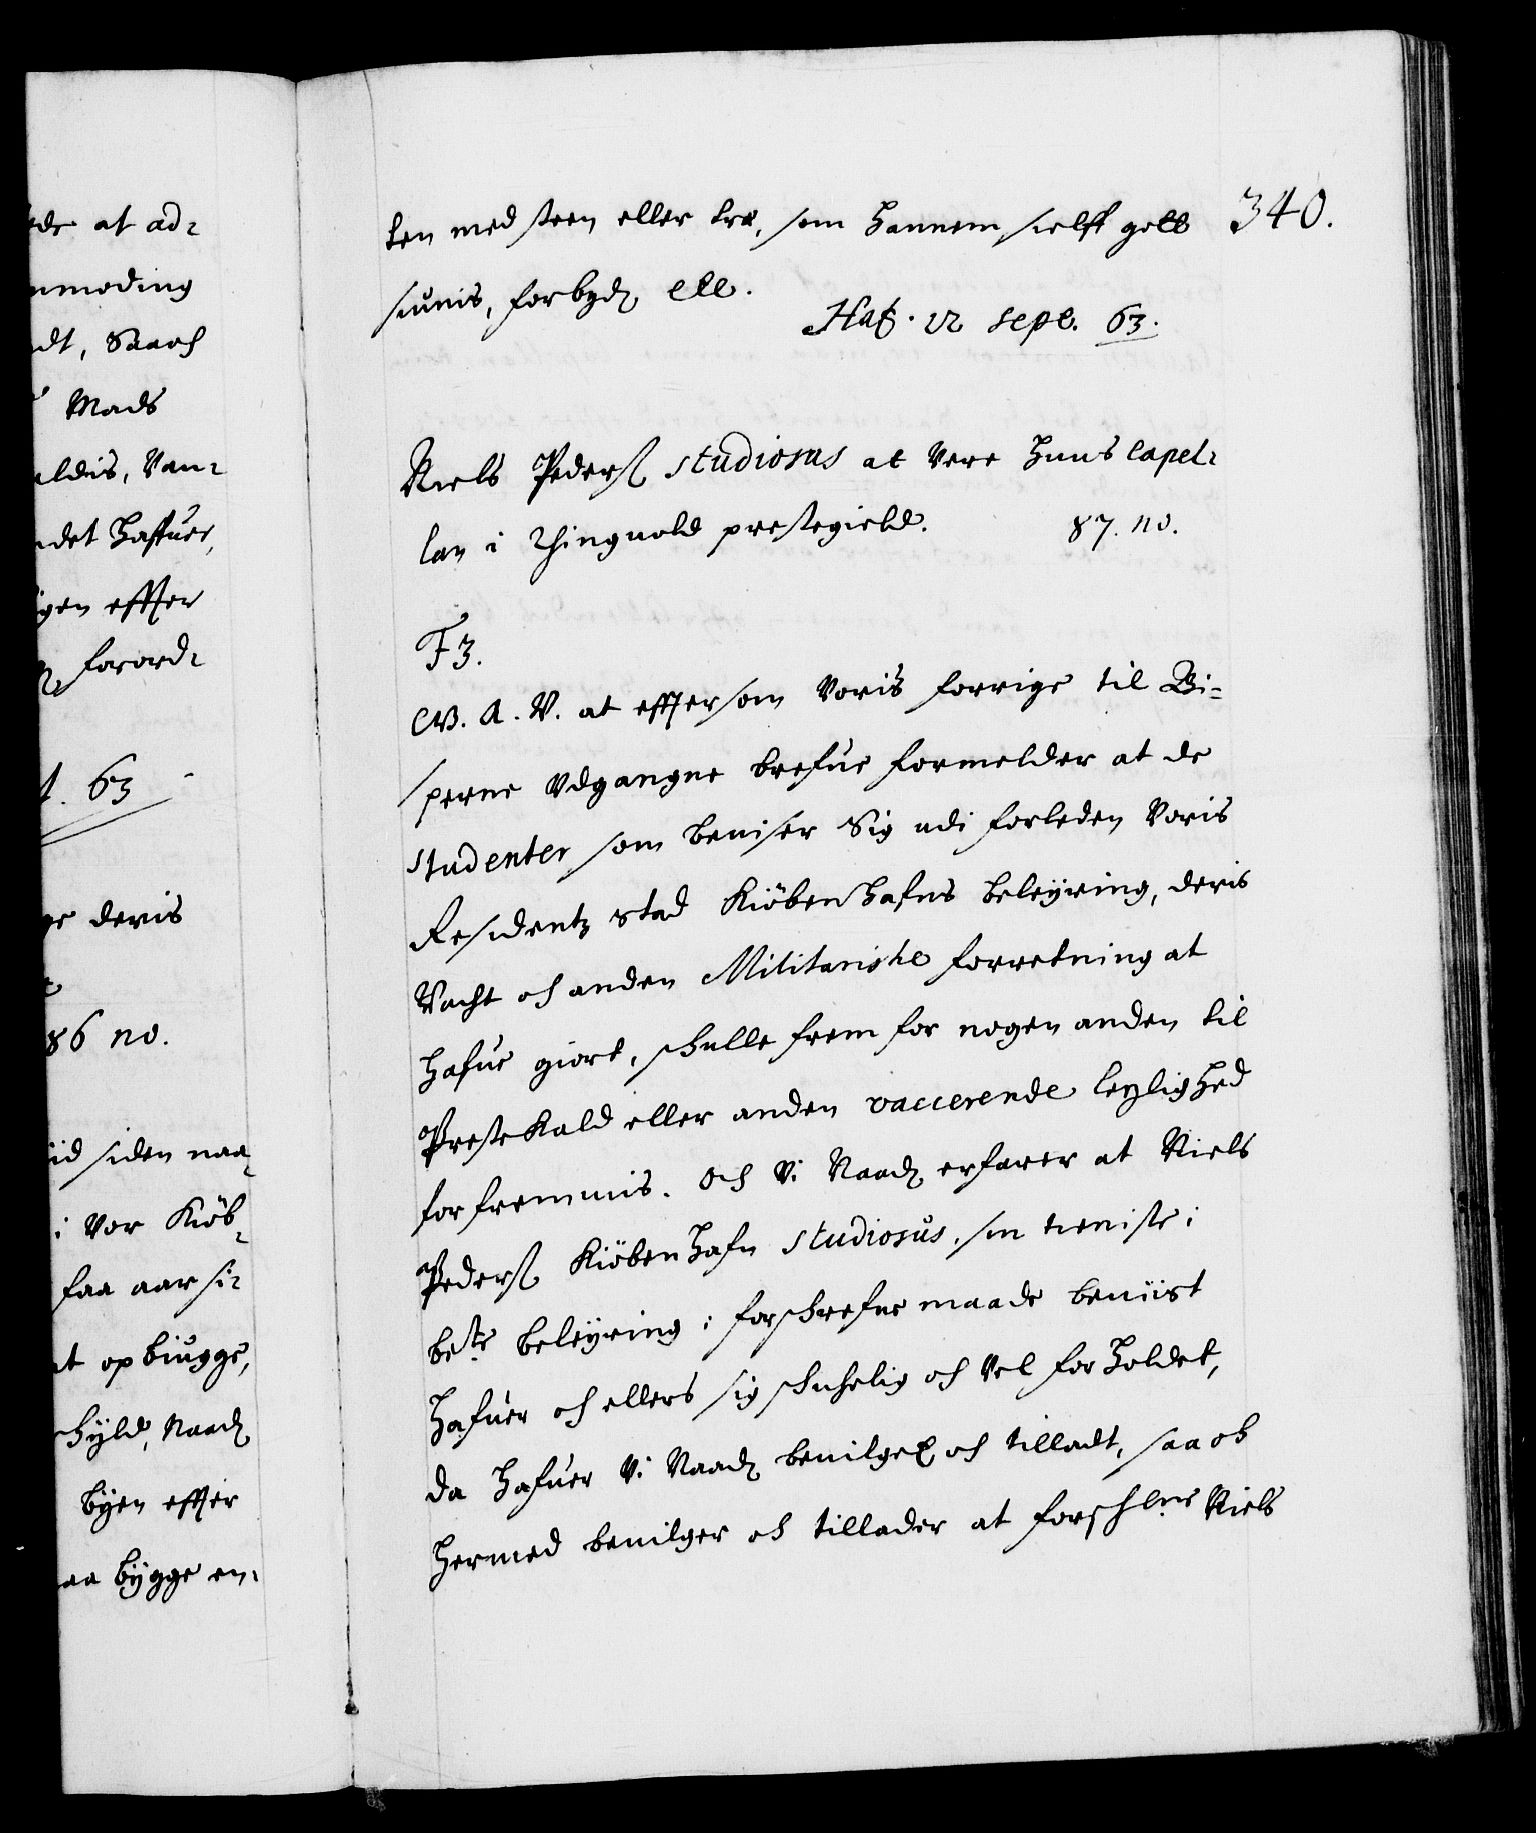 ede at ad-
nmoding
dt, Saa och
Mads
aldis, Van-
ndet Haffuer,
igen effter
forord-
t. 63
ge deris
86 no.
iid siden naa
i Vor Kiöb-
faa aar si-
at opbiugge,
schyld, Naad
byen effter
aa bygge en-
340.
ten med steen eller træ, som hannem sielff gott
siunis, forbyd etc.
Haf. 22 sept. 63.
Niels Peders studiosus at Vere Huus Capel-
lan i Thinguold prestegield. 87. no.
F3.
G. A. V. at efftersom Voris forrige til Bi-
sperne Vdgangne brefue formelder at de
studenter som beviser Sig udi forleden Voris
Residentz stad Kiöbenhafns beleyring, deris
Vacht och anden Militariske forretning at
hafue giort, schulle frem for nogen anden til
Prestekald eller anden vaccerende leylighed
forfremmis. Och Vi Naad erfarer at Niels
Peders Kiöbenhafn studiosus, sin tieniste i
bete beleyring i forschrefne maade beviist
hafuer och ellers sig schichelig och Vel forholdet,
da hafuer Vi Naad bevilget och tilladt, saa och
hermed bevilger och tillader at forschne Niels